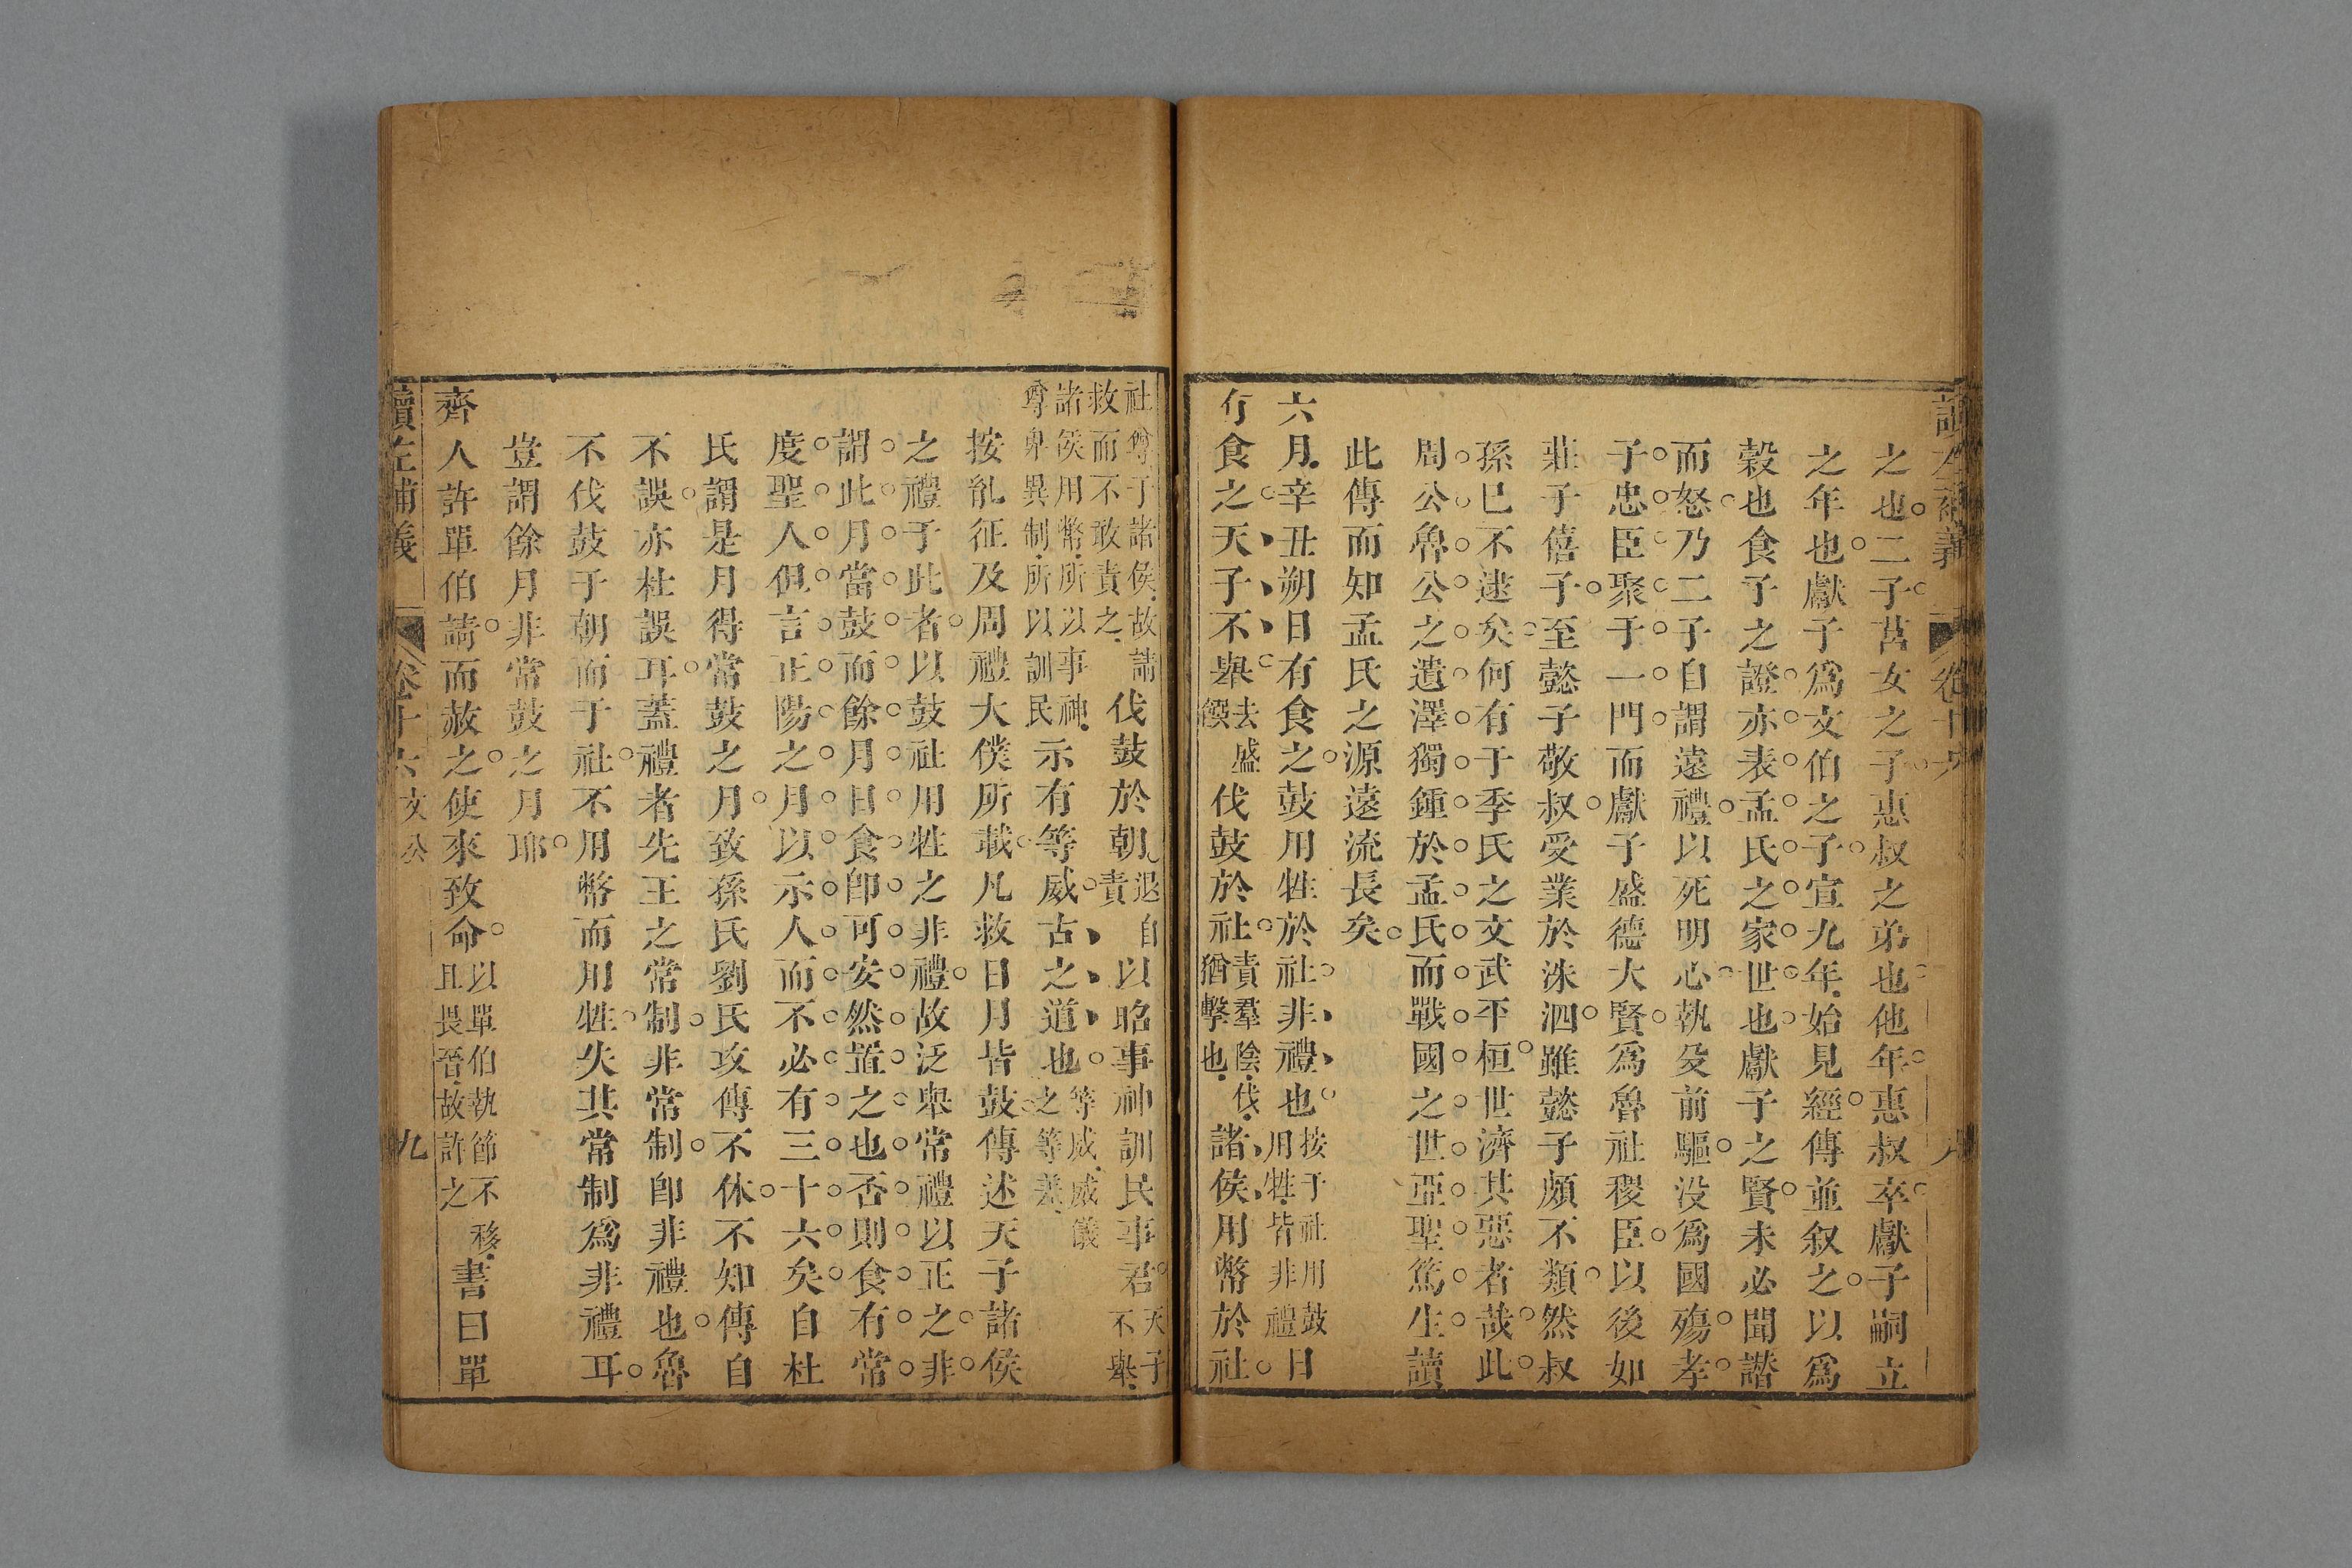 讀左補義 卷十六 八
之也二子莒女之子惠叔之弟也他年惠叔卒獻子嗣立
之年也獻子爲文伯之子宣九年始見經傳並叙之以爲
穀也食子之證亦表孟氏之家世也獻子之賢未必聞譖
而怒乃二子自謂遠禮以死明心執殳前驅没爲國殤孝
子忠臣聚于一門而獻子盛德大賢爲魯社稷臣以後如
莊子僖子至懿子敬叔受業於洙泗雖懿子頗不類然叔
孫已不逮矣何有于季氏之文武平桓世濟其惡者哉此
周公魯公之遺澤獨鍾於孟氏而戰國之世亞聖篤生讀
此傳而知孟氏之源遠流長矣
六月辛丑朔日有食之鼓用牲於社非禮也按于社用鼓用牲皆非禮日
有食之天子不舉去盛饌伐鼓於社責羣陰伐猶擊也諸侯用幣於社
社尊于諸侯故請救而不敢責之伐鼓於朝退自責以昭事神訓民事君天子不舉
諸侯用幣所以事神尊卑異制所以訓民示有等威古之道也等威威儀之等差
按胤征及周禮大僕所載凡救日月皆鼓傳述天子諸侯
之禮于此者以鼓社用牲之非禮故泛舉常禮以正之非
謂此月當鼓而餘月日食卽可安然置之也否則食有常
度聖人但言正陽之月以示人而不必有三十六矣自杜
氏謂是月得常鼓之月致孫氏劉氏攻傳不休不知傳自
不誤亦杜誤耳蓋禮者先王之常制非常制卽非禮也魯
不伐鼓于朝而于社不用幣而用牲失其常制爲非禮耳
豈謂餘月非常鼓之月耶
齊人許單伯請而赦之使來致命以單伯執節不移且畏晉故許之書曰單
讀左補義 卷十六 文公 九